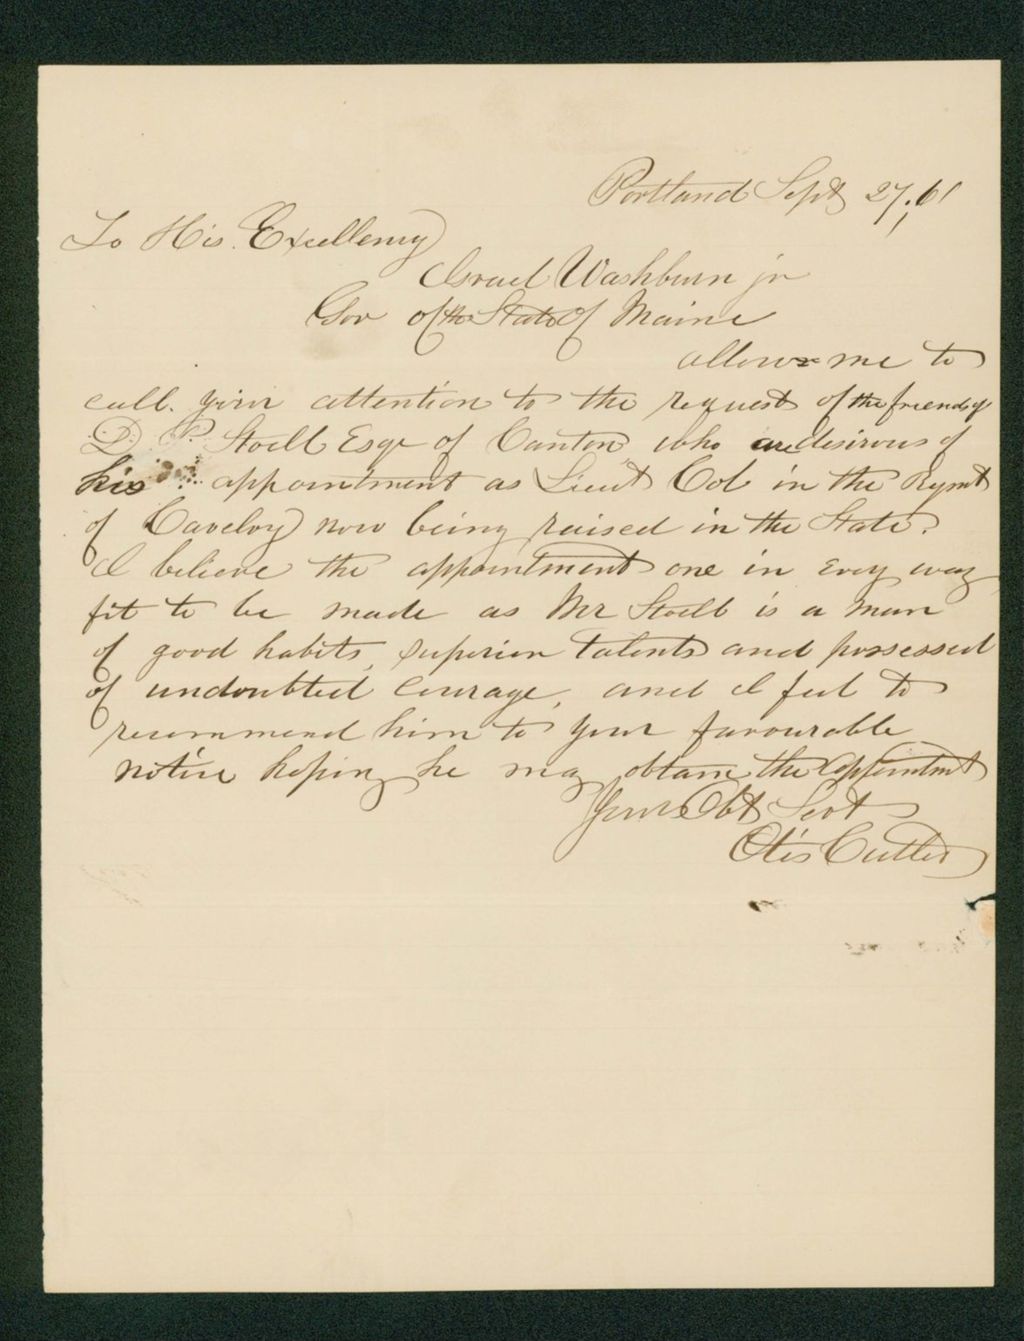 Portland Sept 27, 61
To His Excellency
Israel Washburn jr
Gov of the State of Maine
allow me to
call your attention to the request of the friends of
D. P. Stoell Esqr of Canton who are desirous of
his appointment as Lieut Col in the Regmt
of Cavelry now being raised in the State.
I believe the appointment one in evey way
fit to be made as Mr Stoell is a man
of good habits, superior talents and possessed
of undoubted courage, and I feel to
recommend him to your favourable
notice hoping he may obtain the appointmt
Your Obt Servt
Otis Cutler